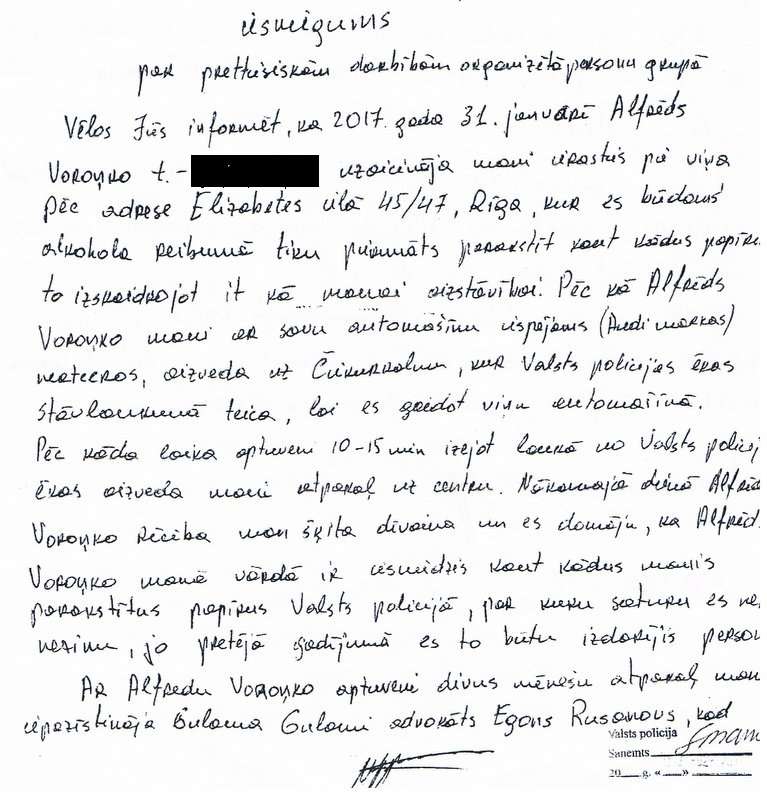 iesniegums
par prettiesiskām darbībām organizētā personu grupā
Vēlos Jūs informēt, ka 2017. gada 31. janvārī Alfrēds
Voroņko t.- uzaicināja mani ierasties pie viņa
pēc adrese Elizabetes ielā 45/47, Rīga, kur es būdams
alkohola reibumā tiku piemānīts parakstīt kaut kādus papīru
to izskaidrojot it kā manai aizstāvībai. Pēc kā Alfrēds
Voroņko mani ar savu automašīnu iespējams (Audi markas)
aizveda uz Čiekurkalnu, kur Valsts policijas ēkas
stāvlaukumā teica, lai es gaidot viņu automašīnā.
Pēc kāda laika aptuveni 10-15 min izejot laukā no Valsts policij
ēkas aizveda mani atpakaļ uz centru. Nākamajā dienā Alfrēd
Voroņko rīcība man šķita dīvaina un es domāju, ka Alfrēds
Voroņko manā vārdā ir iesniedzis kaut kādus manis
parakstītus papīrus Valsts policijā, par kuru saturu es ne
nezinu, jo pretējā gadījumā es to būtu izdarījis person
Ar Alfredu Voroņko aptuveni divus mēnešu atpakaļ man
iepazīstināja Gulami advokāts Egons Rusanovs, kad
Valsts policija
Saņemts
20 . g. « »